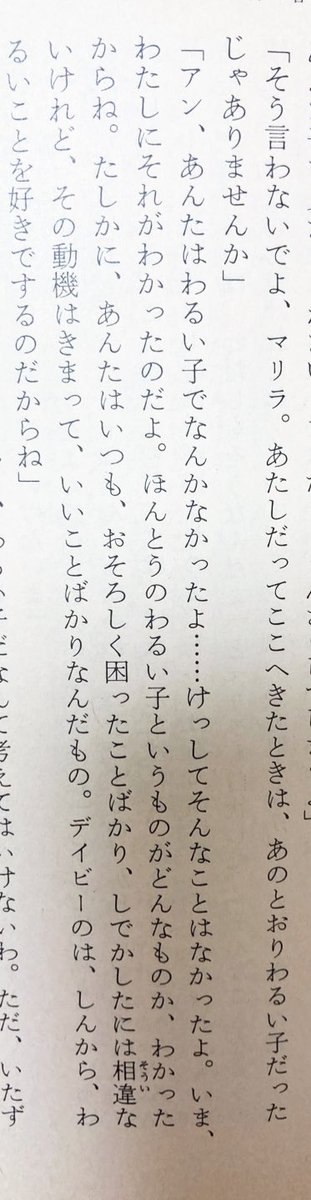 「そう言わないでよ、マリラ。あたしだってここへきたときは、あのとおりわるい子だった
じゃありませんか」
「アン、あんたはわるい子でなんかなかったよ……けっしてそんなことはなかったよ。いま、
わたしにそれがわかったのだよ。ほんとうのわるい子というものがどんなものか、わかった
からね。たしかに、あんたはいつも、おそろしく困ったことばかり、しでかしたには相違な
いけれど、その動機はきまって、いいことばかりなんだもの。デイビーのは、しんから、わ
るいことを好きでするのだからね」
子だなんて考えてはいけないわ。ただ、いたず